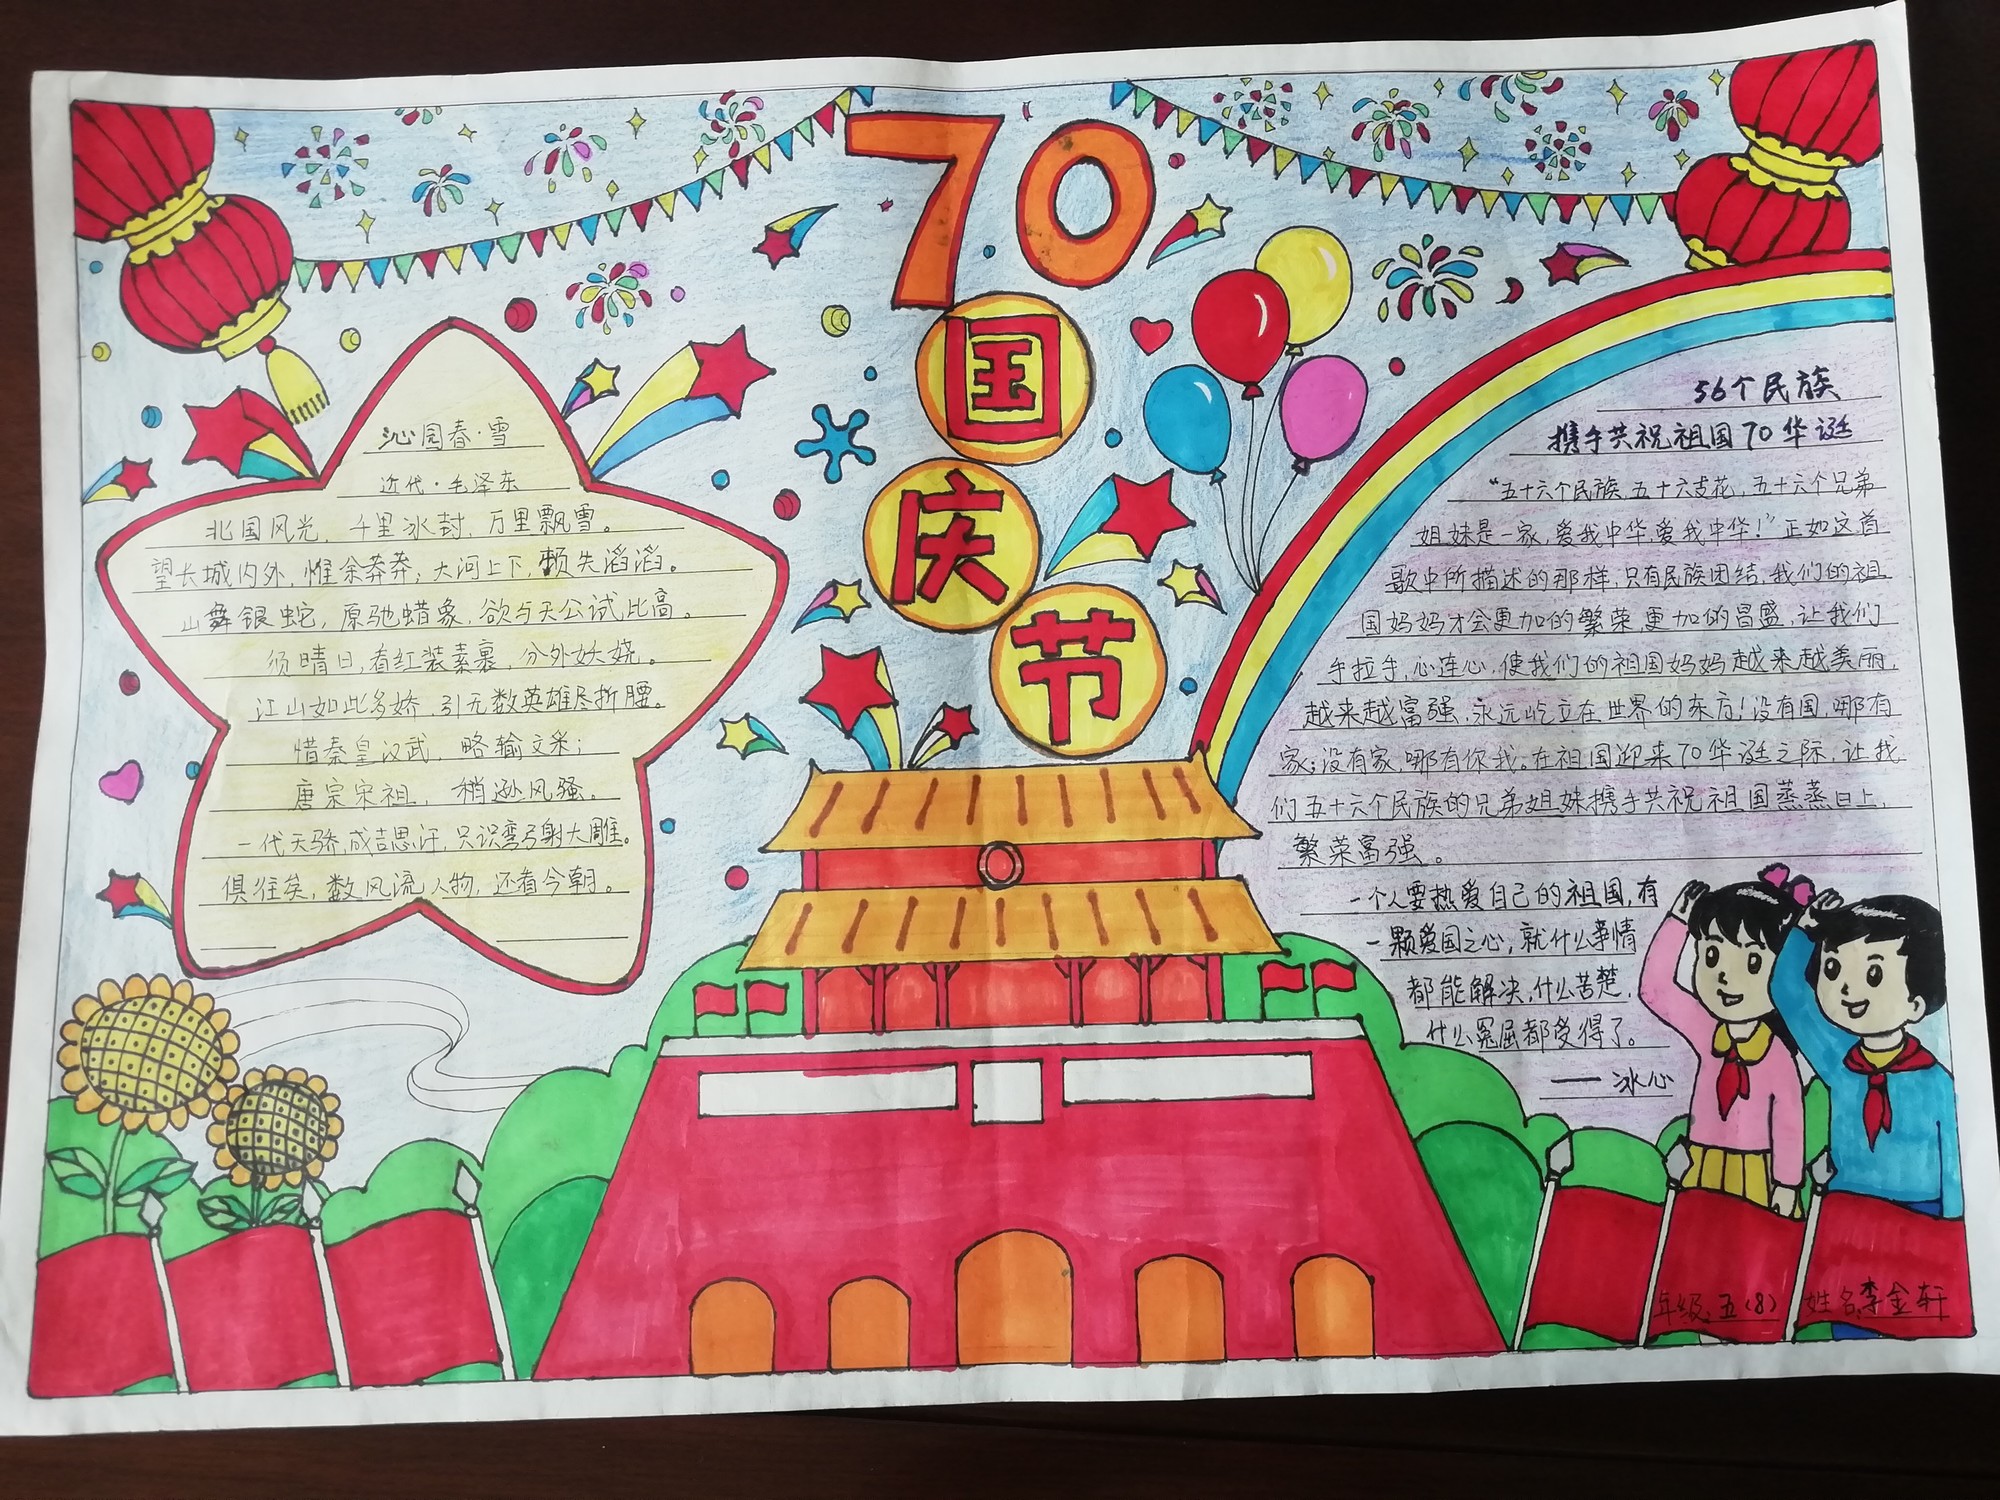 70
国
庆
节
沁园春·雪
近代·毛泽东
北国风光，千里冰封，万里飘雪。
望长城内外，惟余莽莽；大河上下，顿失滔滔。
山舞银蛇，原驰蜡象，欲与天公试比高。
须晴日，看红装素裹，分外妖娆。
江山如此多娇，引无数英雄尽折腰。
惜秦皇汉武，略输文采；
唐宗宋祖，稍逊风骚。
一代天骄，成吉思汗，只识弯弓射大雕。
俱往矣，数风流人物，还看今朝。
56个民族
携手共祝祖国70华诞
“五十六个民族，五十六支花，五十六个兄弟
姐妹是一家，爱我中华，爱我中华！”正如这首
歌中所描述的那样，只有民族团结，我们的祖
国妈妈才会更加的繁荣，更加的昌盛，让我们
手拉手，心连心，使我们的祖国妈妈越来越美丽，
越来越富强，永远屹立在世界的东方！没有国，哪有
家；没有家，哪有你我。在祖国迎来70华诞之际，让我
们五十六个民族的兄弟姐妹携手共祝祖国蒸蒸日上，
繁荣富强。
一个人要热爱自己的祖国，有
一颗爱国之心，就什么事情
都能解决，什么苦楚，
什么冤屈都受得了。
——冰心
年级：五（8） 姓名：李金轩